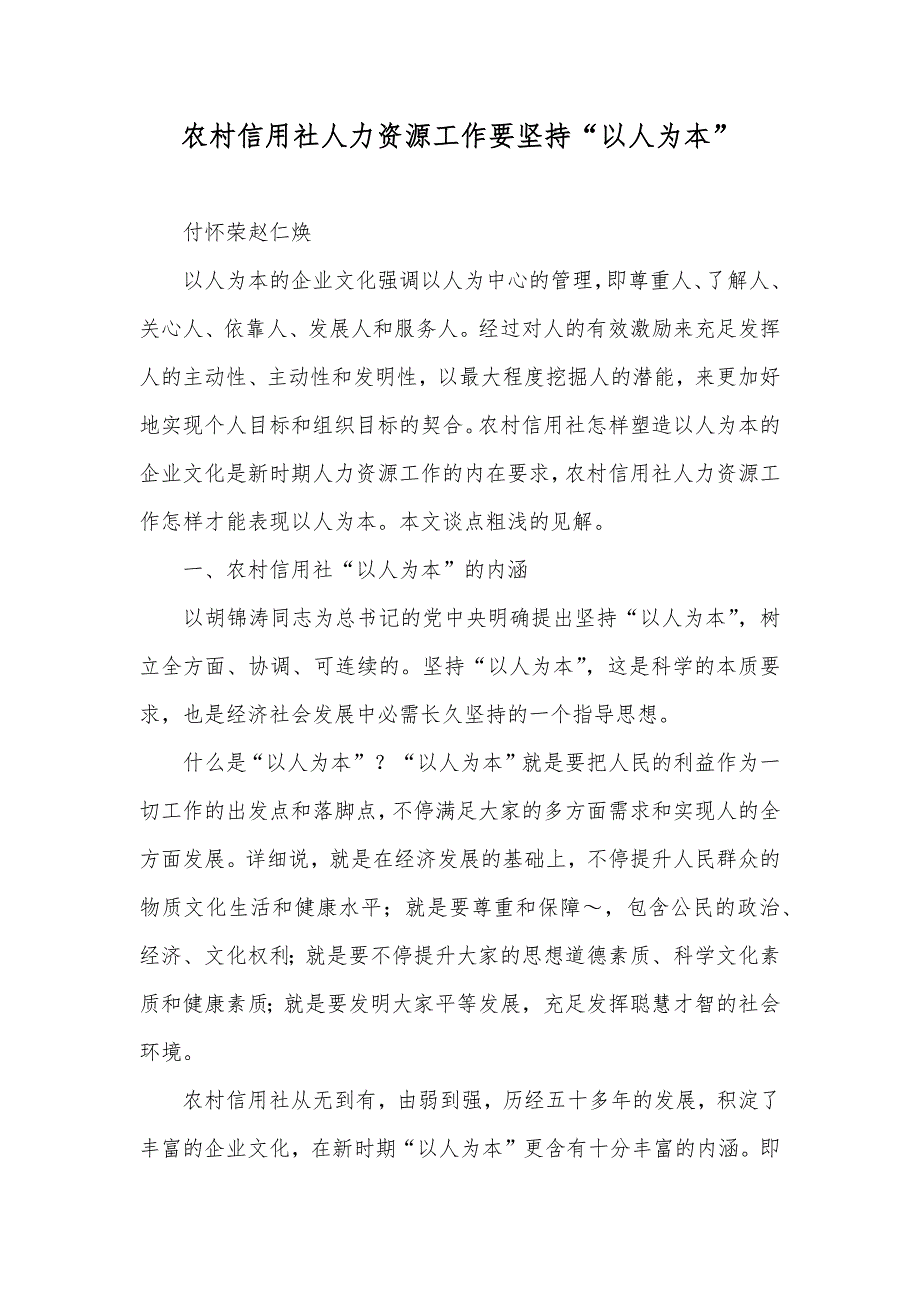 农村信用社人力资源工作要坚持“以人为本”
付怀荣赵仁焕
以人为本的企业文化强调以人为中心的管理，即尊重人、了解人、
关心人、依靠人、发展人和服务人。经过对人的有效激励来充足发挥
人的主动性、主动性和发明性，以最大程度挖掘人的潜能，来更加好
地实现个人目标和组织目标的契合。农村信用社怎样塑造以人为本的
企业文化是新时期人力资源工作的内在要求，农村信用社人力资源工
作怎样才能表现以人为本。本文谈点粗浅的见解。
一、农村信用社“以人为本”的内涵
以胡锦涛同志为总书记的党中央明确提出坚持“以人为本”，树
立全方面、协调、可连续的。坚持“以人为本”，这是科学的本质要
求，也是经济社会发展中必需长久坚持的一个指导思想。
什么是“以人为本”？“以人为本”就是要把人民的利益作为一
切工作的出发点和落脚点，不停满足大家的多方面需求和实现人的全
方面发展。详细说，就是在经济发展的基础上，不停提升人民群众的
物质文化生活和健康水平；就是要尊重和保障～，包含公民的政治、
经济、文化权利；就是要不停提升大家的思想道德素质、科学文化素
质和健康素质；就是要发明大家平等发展，充足发挥聪慧才智的社会
环境。
农村信用社从无到有，由弱到强，历经五十多年的发展，积淀了
丰富的企业文化，在新时期“以人为本”更含有十分丰富的内涵。即